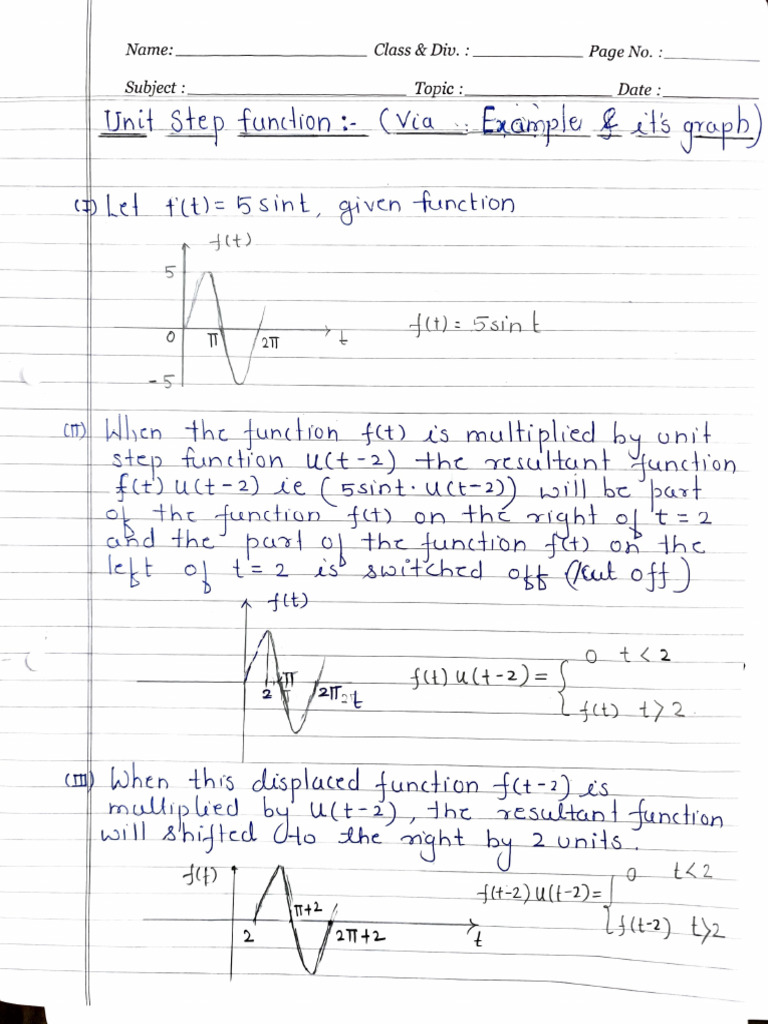 Name: Class & Div. : Page No. :
Subject : Topic : Date :
Unit Step function :- (Via Example & it's graph)
(I) Let f(t) = 5 sint, given function
f(t)
5
0 π 2π t
f(t) = 5 sin t
-5
(II) When the function f(t) is multiplied by unit
step function u(t-2) the resultant function
f(t) u(t-2) ie (5sint. u(t-2)) will be part
of the function f(t) on the right of t = 2
and the part of the function f(t) on the
left of t = 2 is switched off (cut off)
f(t)
0 t < 2
f(t) u(t-2) = {
2 π 2π t
f(t) t > 2
(III) When this displaced function f(t-2) is
multiplied by u(t-2), the resultant function
will shifted to the right by 2 units.
f(t)
0 t<2
f(t-2) u(t-2) = {
2 π+2 2π+2 t
f(t-2) t>2